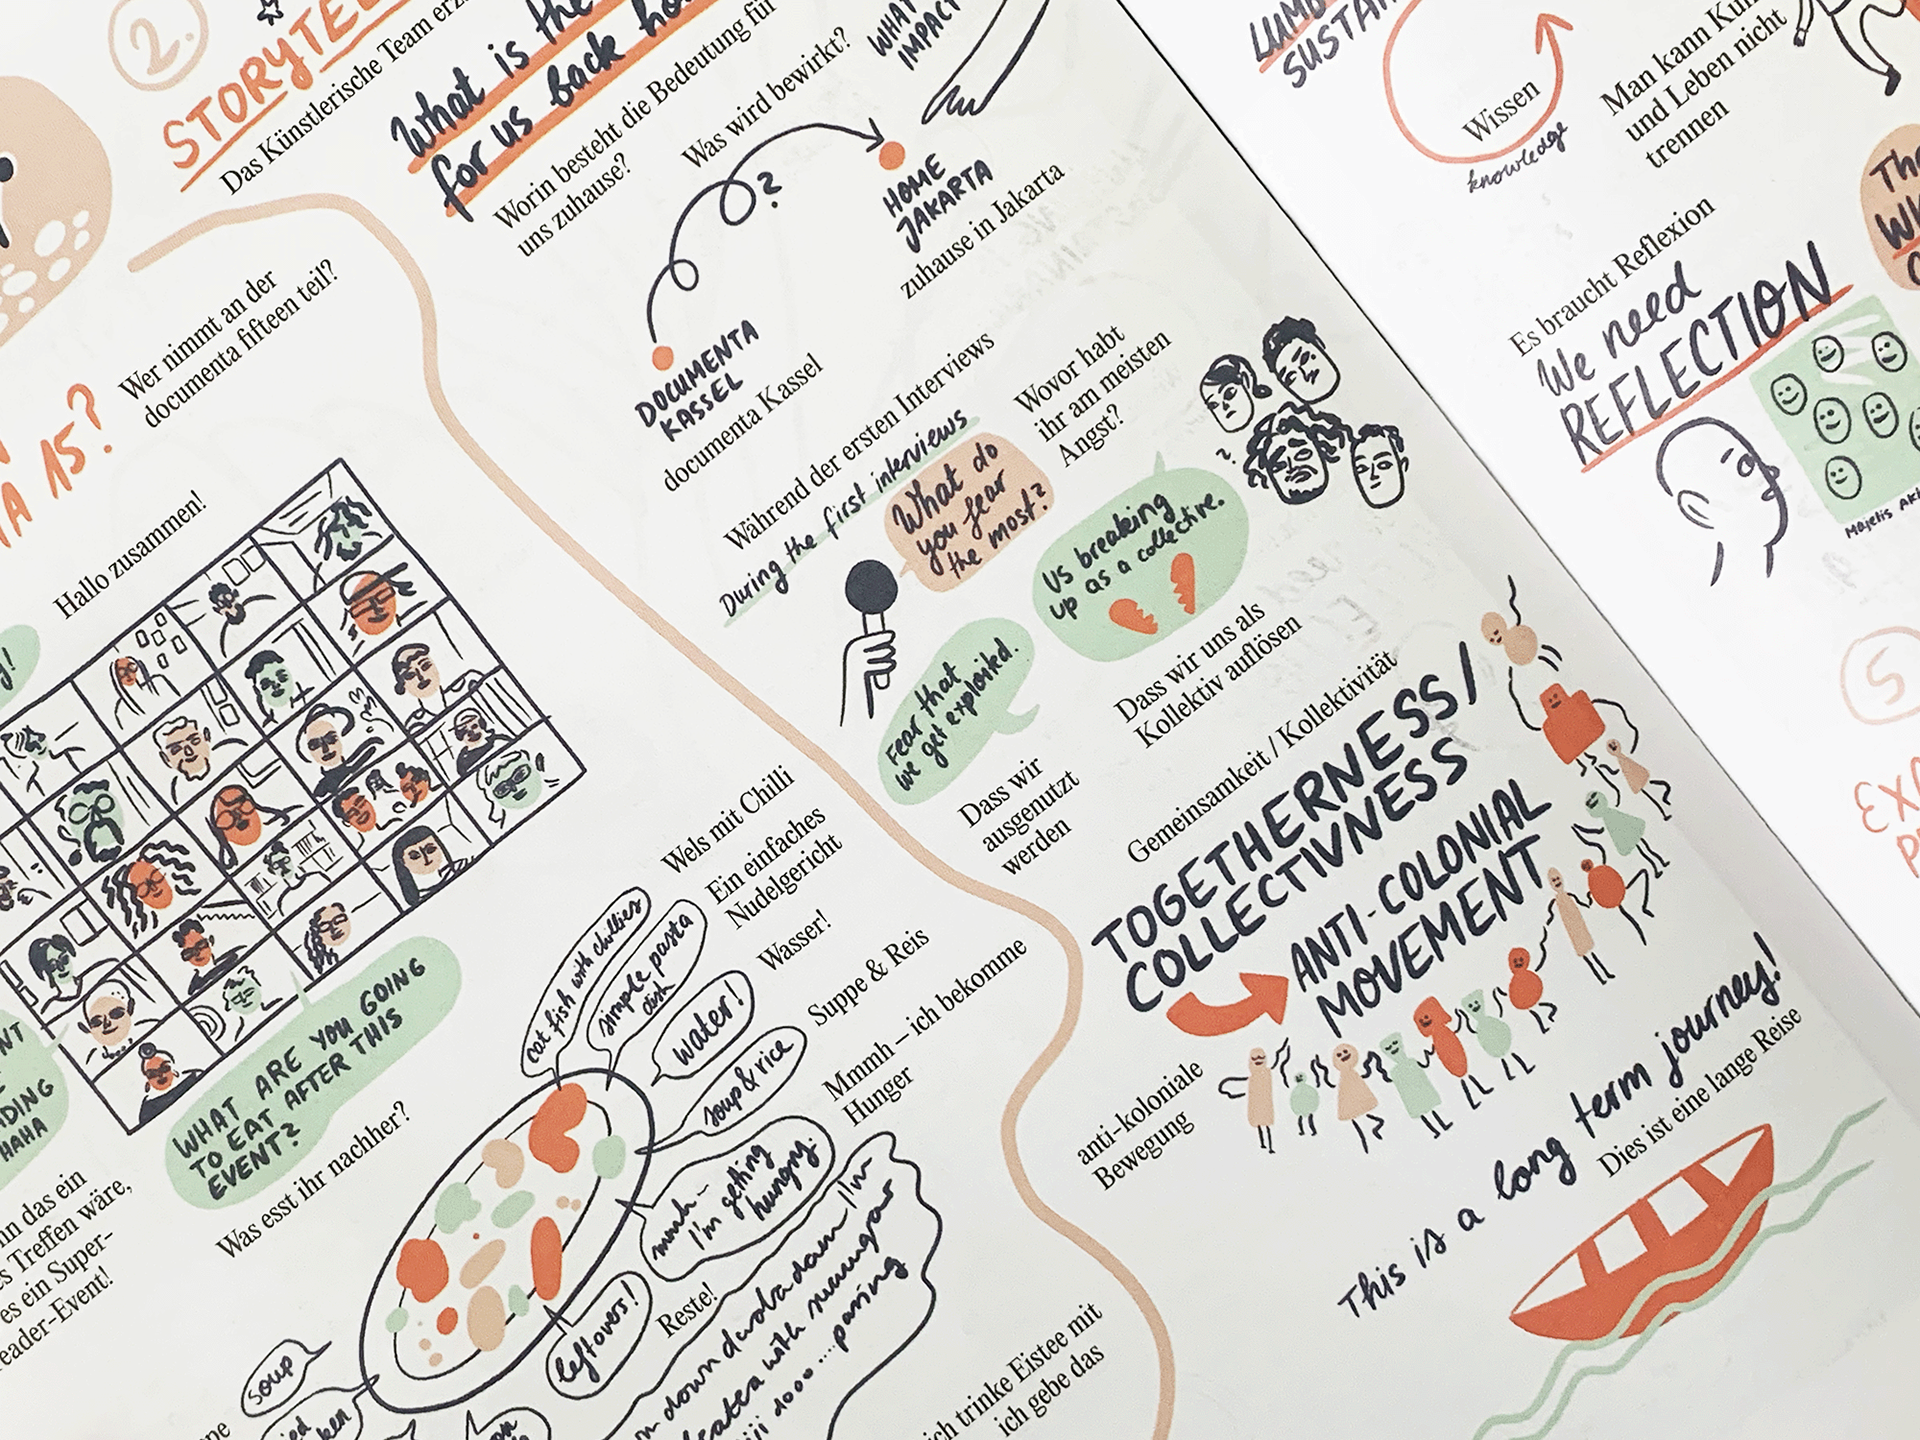 2.
Das Künstlerische Team
What is the
for us back
Worin besteht die Bedeutung für
uns zuhause?
WHAT
IMPACT
Was wird bewirkt?
?
HOME
JAKARTA
zuhause in Jakarta
DOCUMENTA
KASSEL
documenta Kassel
Wer nimmt an der
documenta fifteen teil?
15?
Hallo zusammen!
WHAT ARE YOU GOING
TO EAT AFTER THIS
EVENT?
Was esst ihr nachher?
HAHA
das ein
Treffen wäre,
es ein Super-
Event!
Während der ersten Interviews
During the first interviews
What do
you fear
the most?
Wovor habt
ihr am meisten
Angst?
?
Us breaking
up as a collective.
Dass wir uns als
Kollektiv auflösen
Fear that
we get exploited.
Dass wir
ausgenutzt
werden
Gemeinsamkeit / Kollektivität
TOGETHERNESS /
COLLECTIVNESS
ANTI-COLONIAL
MOVEMENT
anti-koloniale
Bewegung
This is a long term journey!
Dies ist eine lange Reise
Wels mit Chilli
Ein einfaches
Nudelgericht
Wasser!
Suppe & Reis
Mmmh – ich bekomme
Hunger
cat fish with chillies
simple pasta
dish
water!
soup & rice
mmh –
I'm getting
hungry.
leftovers!
Reste!
soup
down
with
1000 ....
ich trinke Eistee mit
ich gebe das
Wissen
knowledge
Man kann
und Leben nicht
trennen
Es braucht Reflexion
We need
REFLECTION
Majelis
5